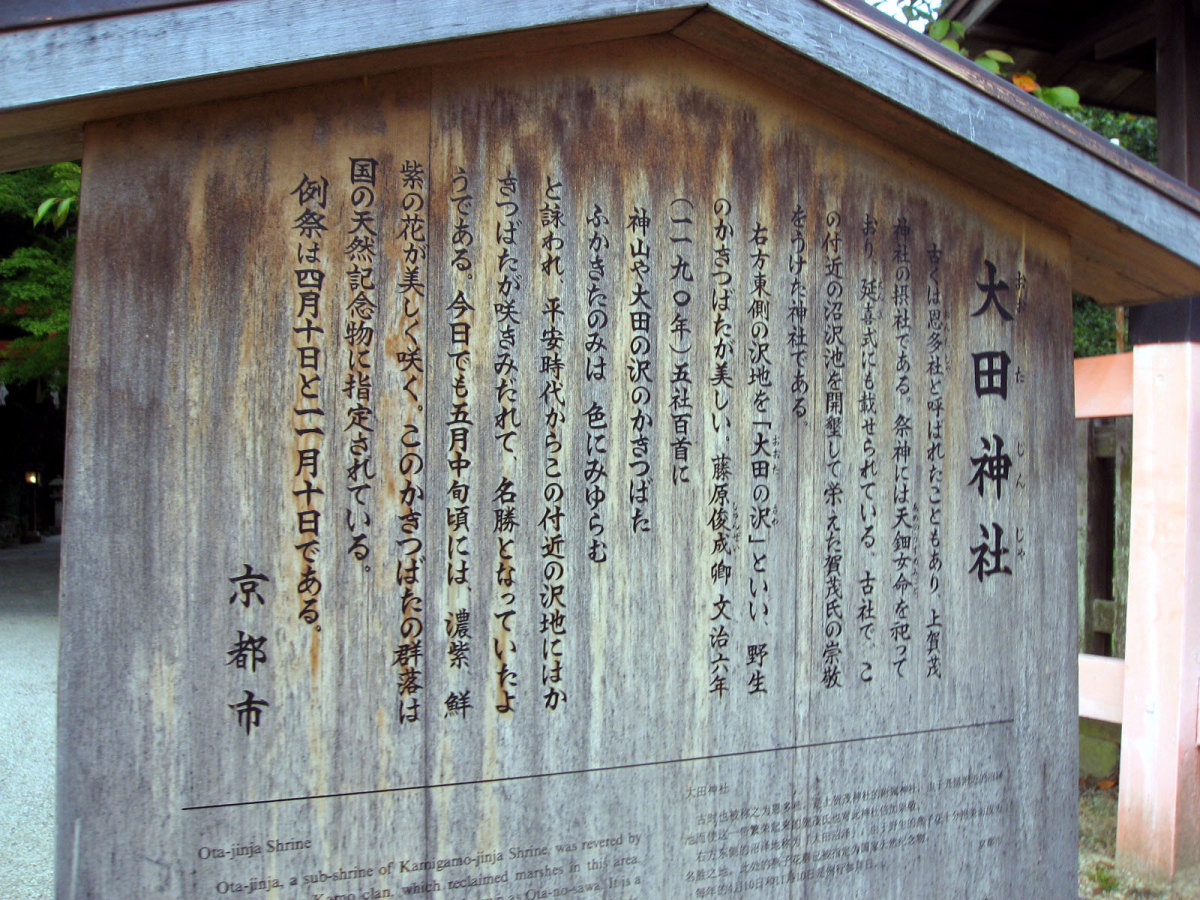 大田神社
おおたじんじゃ
古くは恩多社と呼ばれたこともあり、上賀茂
神社の摂社である。祭神には天鈿女命を祀って
おり、延喜式にも載せられている。古社で、こ
の付近の沼沢池を開墾して栄えた賀茂氏の崇敬
をうけた神社である。
右方東側の沢地を「大田の沢」といい、野生
のかきつばたが美しい。藤原俊成卿 文治六年
(一一九〇年)五社百首に
神山や大田の沢のかきつばた
ふかきたのみは 色にみゆらむ
と詠われ、平安時代からこの付近の沢地にはか
きつばたが咲きみだれて、名勝となっていたよ
うである。今日でも五月中旬頃には、濃紫、鮮
紫の花が美しく咲く。このかきつばたの群落は
国の天然記念物に指定されている。
例祭は四月十日と十一月十日である。
京都市
Ota-jinja Shrine
Ota-jinja, a sub-shrine of Kamigamo-jinja Shrine, was revered by
Kamo clan, which reclaimed marshes in this area.
as Ota-no-sawa. It is a
大田神社
每年的4月10日和11月10日是例行参拜日。
京都市